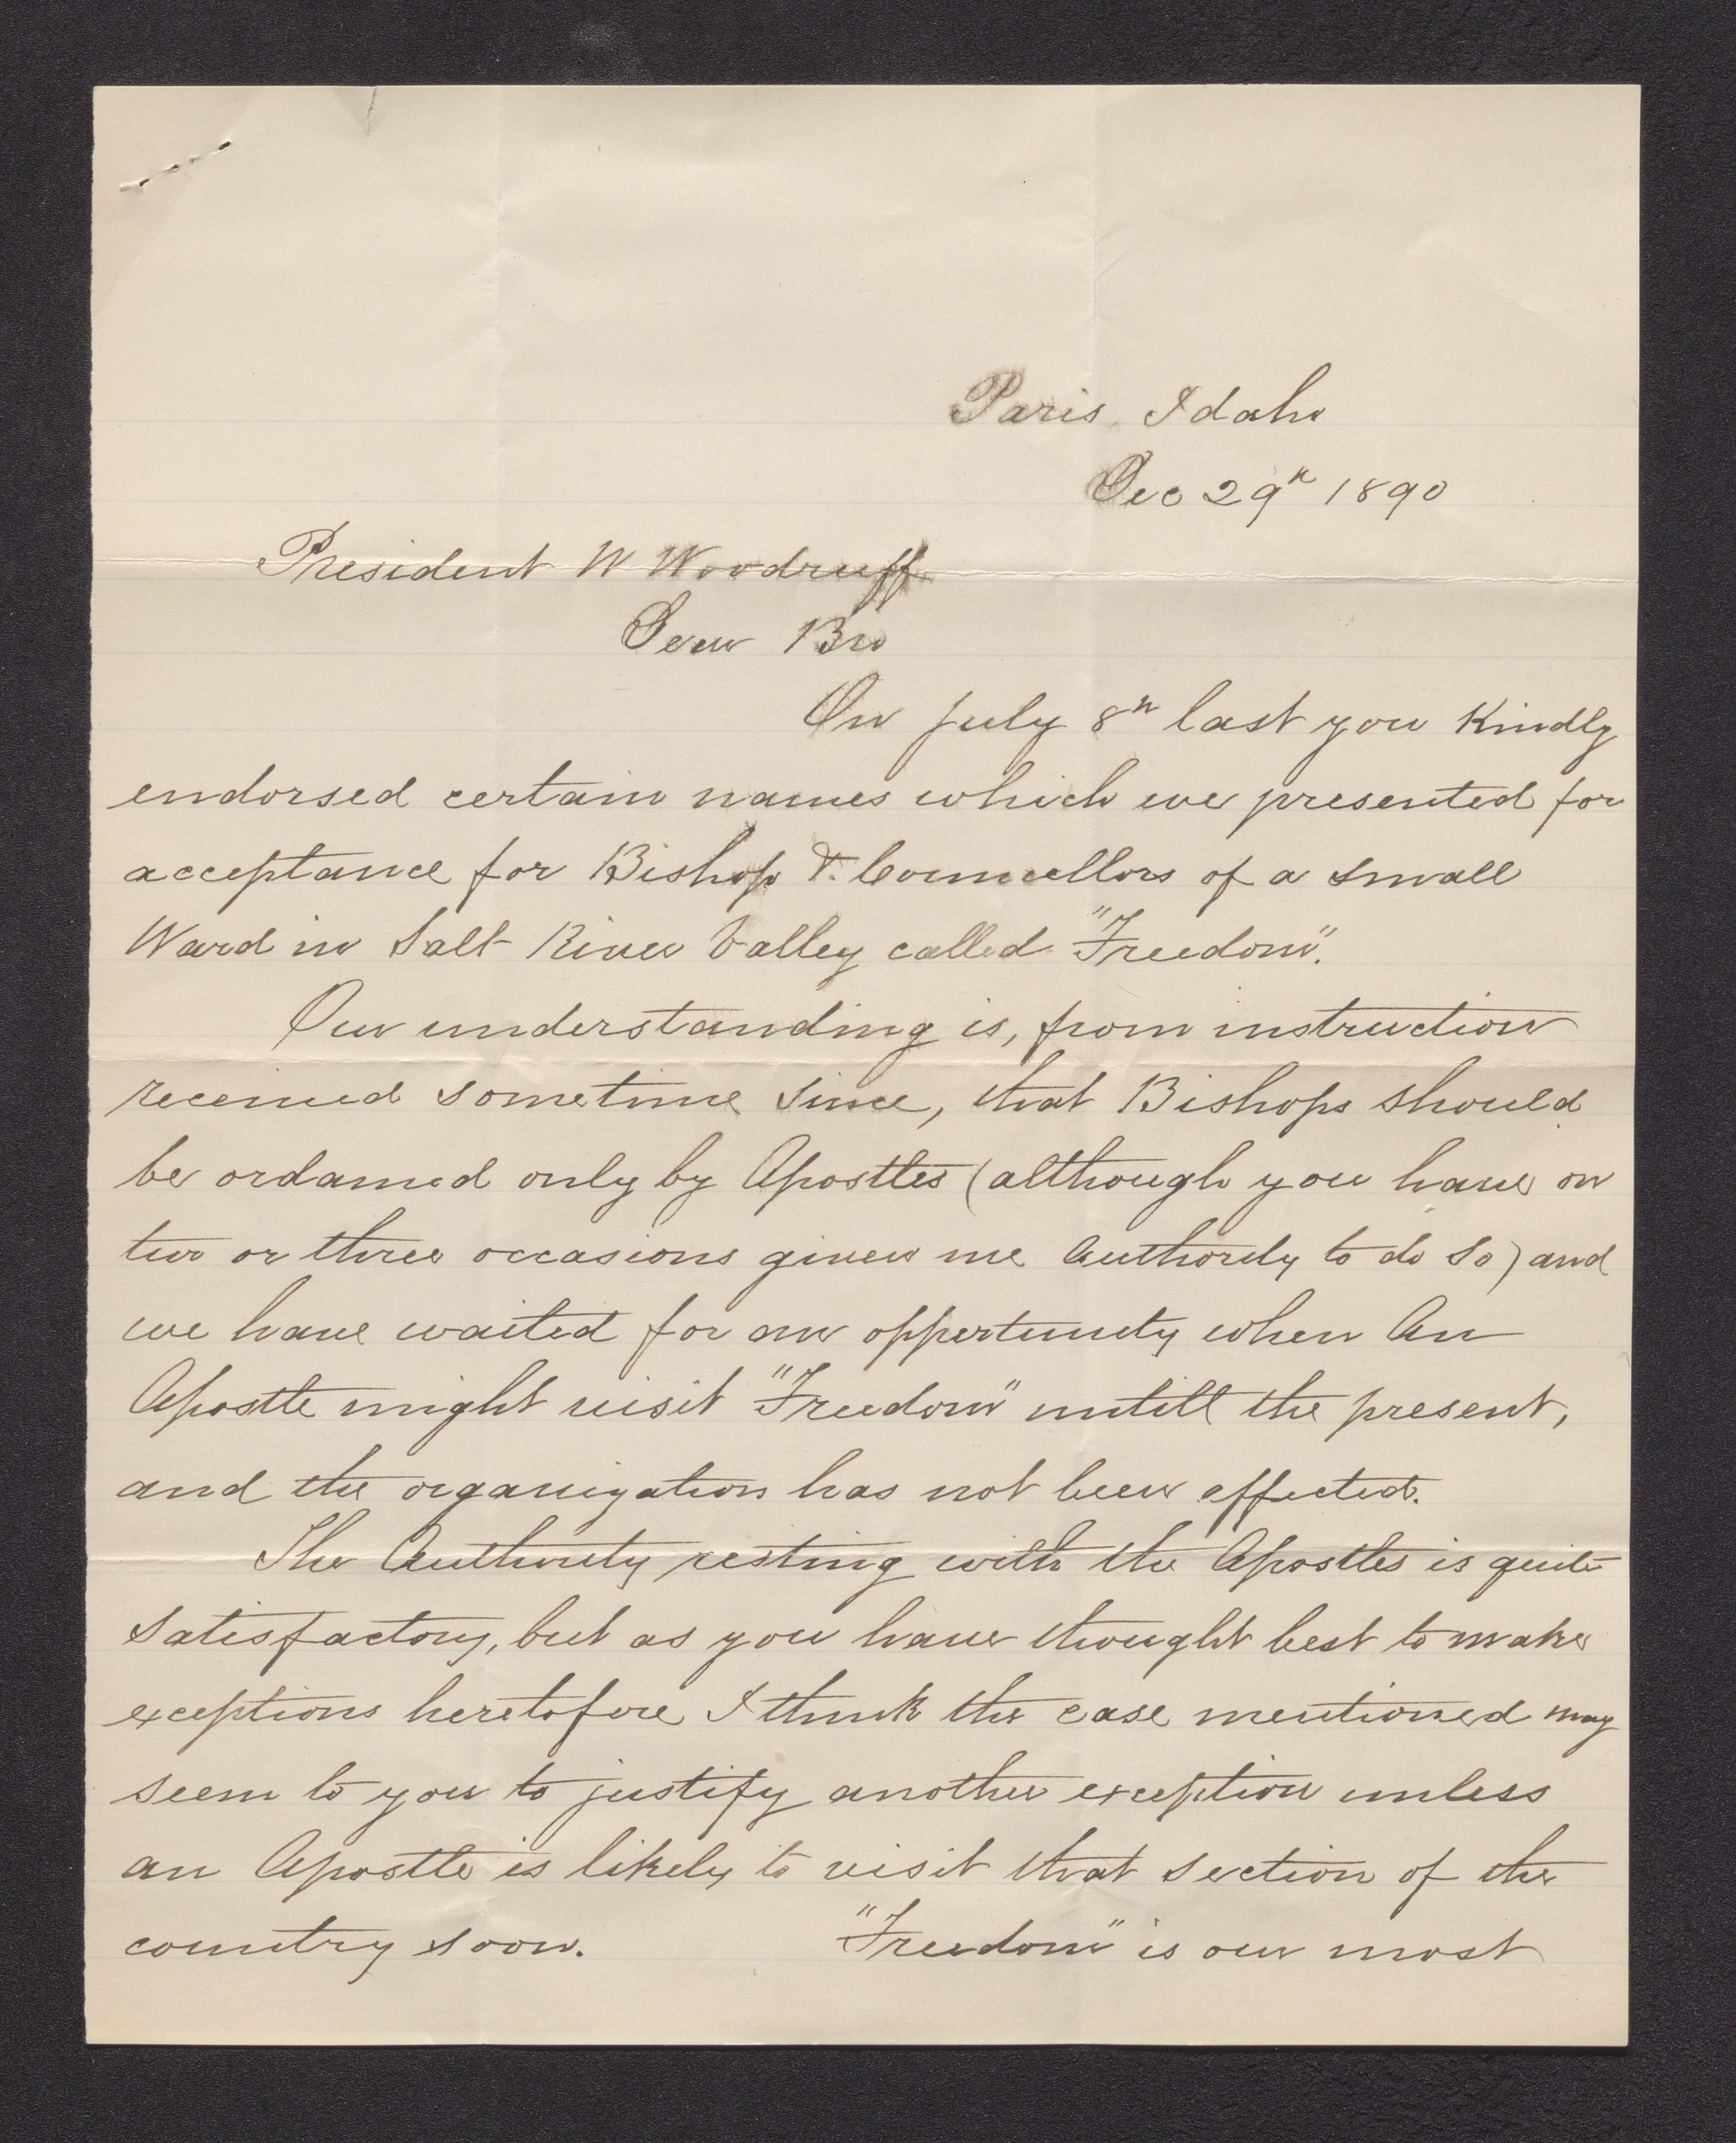 Paris, Idaho
Dec 29th 1890
President W Woodruff
Dear Bro
On July 8th last you Kindly
endorsed certain names which we presented for
acceptance for Bishop & Councellors of a small
Ward in Salt River Valley called "Freedom".
Our understanding is, from instruction
received sometime since, that Bishops should
be ordained only by Apostles (although you have on
two or three occasions given me Authority to do so) and
we have waited for an oppertunity when An
Apostle might visit "Freedom" untill the present,
and the organization has not been effected.
The Authority resting with the Apostles is quite
satisfactory, but as you have thought best to make
exceptions heretofore I think the case mentioned may
seem to you to justify another exception unless
an Apostle is likely to visit that section of the
country soon. "Freedom" is our most